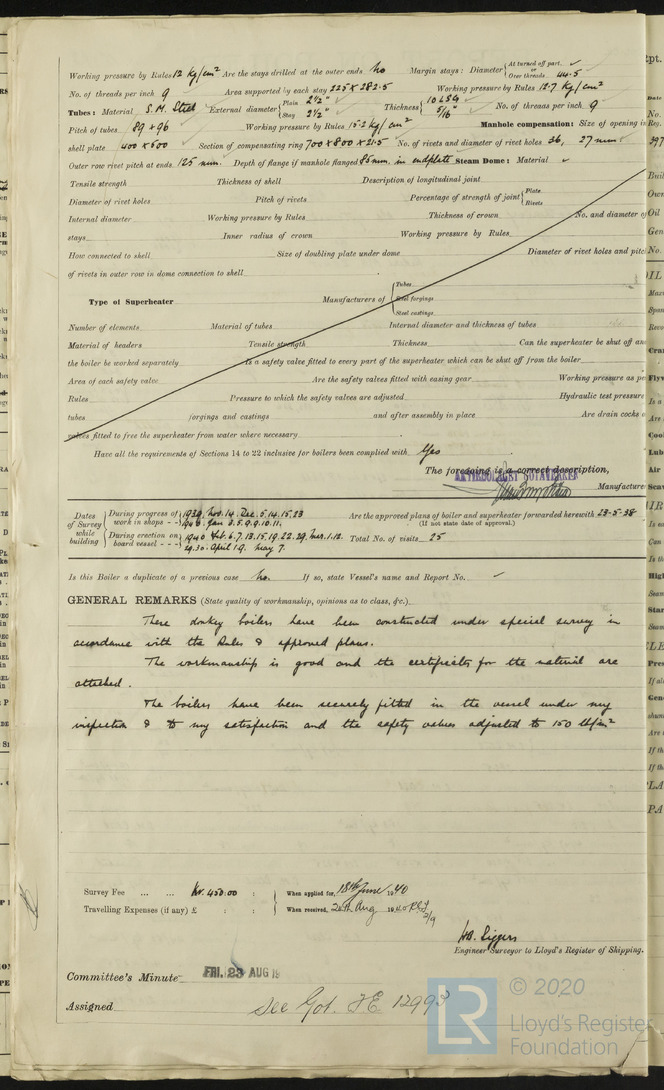 Working pressure by Rules 12 kg/cm² Are the stays drilled at the outer ends No Margin stays: Diameter { At turned off part, ✓ or Over threads 44.5
No. of threads per inch 9 Area supported by each stay 225 x 282.5 Working pressure by Rules 12.7 kg/cm²
Tubes: Material S.M. Steel External diameter { Plain 2½" Stay 2½" Thickness { 10 LSG 5/16" No. of threads per inch 9
Pitch of tubes 89 + 96 Working pressure by Rules 15.2 kg/cm² Manhole compensation: Size of opening in
shell plate 400 x 500 Section of compensating ring 700 x 800 x 21.5 No. of rivets and diameter of rivet holes 36, 27 mm
Outer row rivet pitch at ends 125 mm. Depth of flange if manhole flanged 85 mm, in endplate Steam Dome: Material ✓
Tensile strength Thickness of shell Description of longitudinal joint
Diameter of rivet holes Pitch of rivets Percentage of strength of joint { Plate Rivets
Internal diameter Working pressure by Rules Thickness of crown No. and diameter of
stays Inner radius of crown Working pressure by Rules
How connected to shell Size of doubling plate under dome Diameter of rivet holes and pitc
of rivets in outer row in dome connection to shell
Type of Superheater Manufacturers of { Tubes Steel forgings Steel castings
Number of elements Material of tubes Internal diameter and thickness of tubes
Material of headers Tensile strength Thickness Can the superheater be shut off an
the boiler be worked separately Is a safety valve fitted to every part of the superheater which can be shut off from the boiler
Area of each safety valve Are the safety valves fitted with easing gear Working pressure as pe
Rules Pressure to which the safety valves are adjusted Hydraulic test pressure
tubes forgings and castings and after assembly in place Are drain cocks o
valves fitted to free the superheater from water where necessary
Have all the requirements of Sections 14 to 22 inclusive for boilers been complied with Yes
The foregoing is a correct description,
AKTIEBOLAGET GÖTAVERKEN
Manufacture
Dates of Survey while building { During progress of work in shops - - 1939. Nov. 14. Dec. 5. 14. 15. 23 1940. Jan. 3. 5. 9. 9. 10. 11.
Are the approved plans of boiler and superheater forwarded herewith 23-5-38
(If not state date of approval.)
{ During erection on board vessel - - - 1940 Feb. 6. 7. 13. 15. 19. 22. 29. Mar. 1. 12. 29. 30. April 19. May 7. Total No. of visits 25
Is this Boiler a duplicate of a previous case No. If so, state Vessel's name and Report No. ✓
GENERAL REMARKS (State quality of workmanship, opinions as to class, &c.)
These donkey boilers have been constructed under special survey in
accordance with the Rules & approved plans.
The workmanship is good and the certificates for the material are
attached.
The boilers have been securely fitted in the vessel under my
inspection & to my satisfaction and the safety valves adjusted to 150 lb/in²
Survey Fee ... ... Kr. 450.00 : When applied for, 18th June 1940
Travelling Expenses (if any) £ : : When received, 20th Aug 1940
Engineer Surveyor to Lloyd's Register of Shipping.
Committee's Minute FRI. 23 AUG 19
Assigned See Got. FE 12993
LR © 2020
Lloyd's Register
Foundation